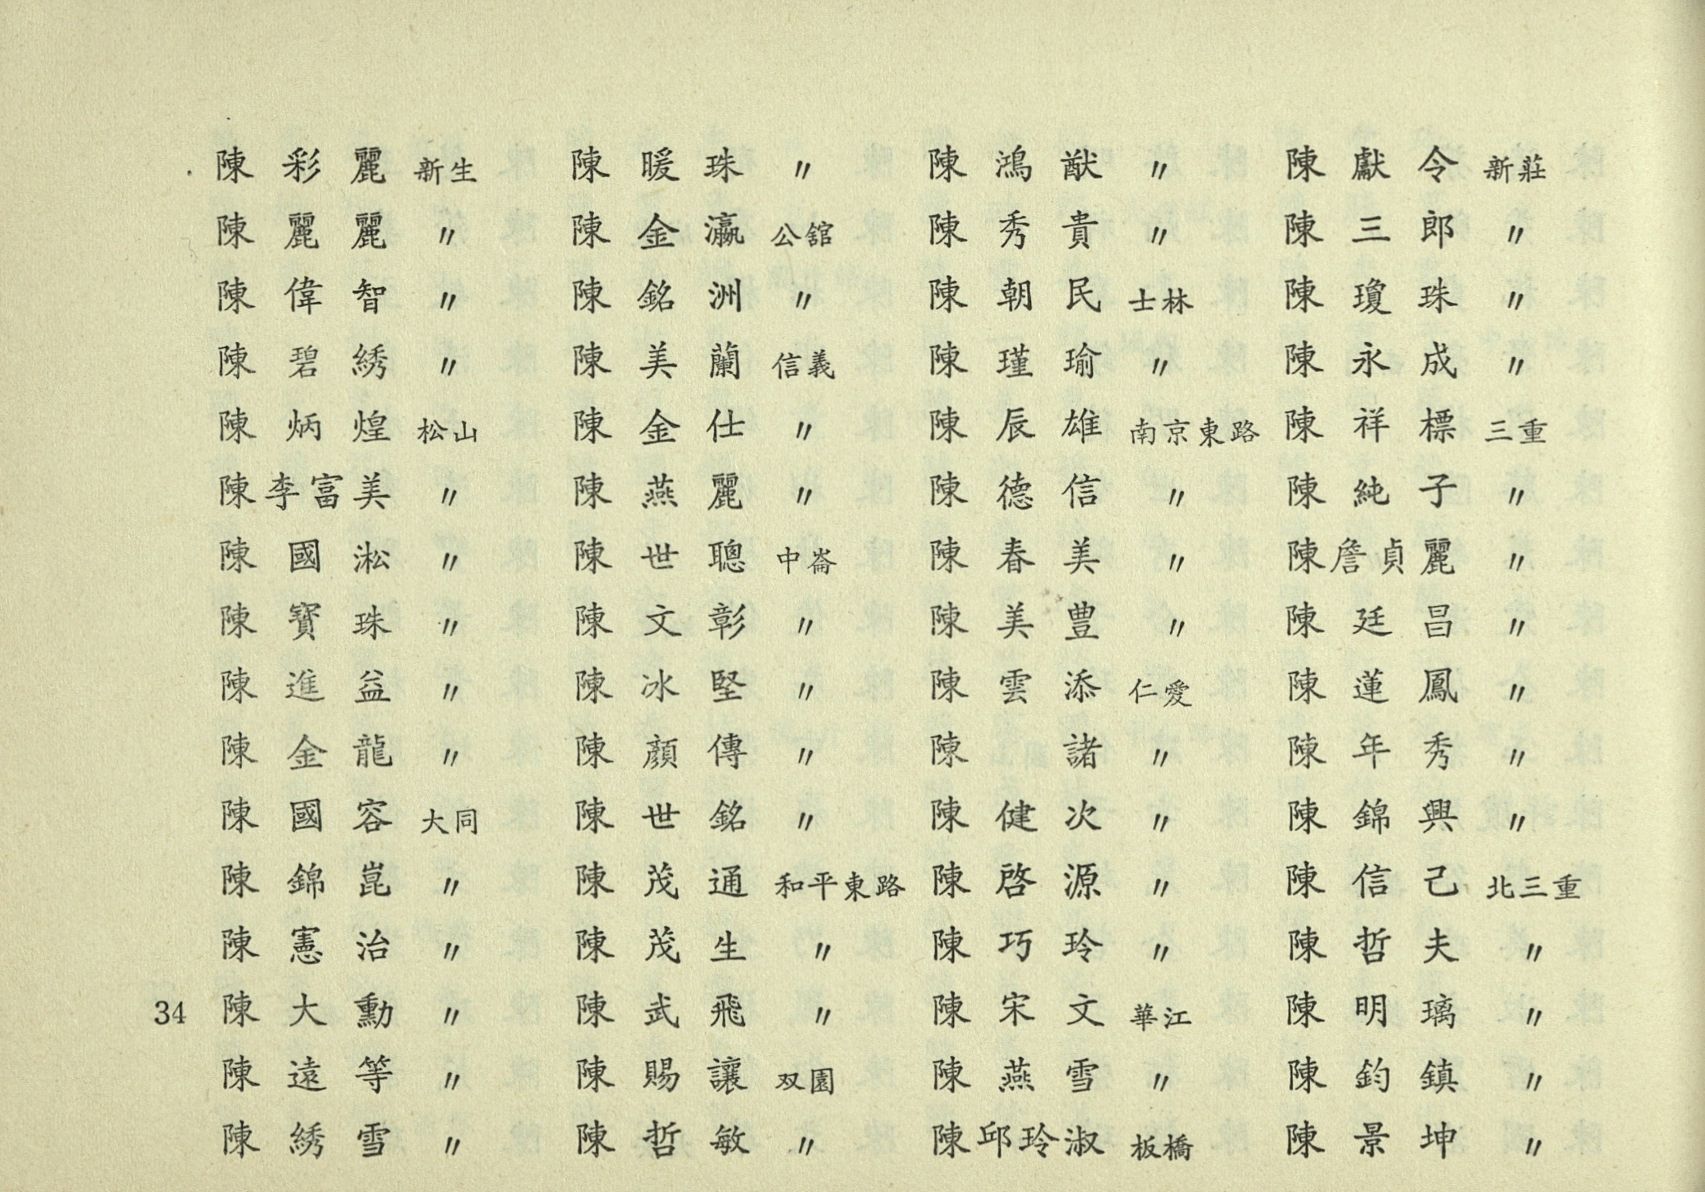 陳彩麗 新生
陳麗麗 〃
陳偉智 〃
陳碧綉 〃
陳炳煌 松山
陳李富美 〃
陳國淞 〃
陳寶珠 〃
陳進益 〃
陳金龍 〃
陳國容 大同
陳錦崑 〃
陳憲治 〃
陳大勳 〃
陳遠等 〃
陳綉雪 〃
陳暖珠 〃
陳金瀛 公舘
陳銘洲 〃
陳美蘭 信義
陳金仕 〃
陳燕麗 〃
陳世聰 中崙
陳文彰 〃
陳冰堅 〃
陳顏傳 〃
陳世銘 〃
陳茂通 和平東路
陳茂生 〃
陳武飛 〃
陳賜讓 双園
陳哲敏 〃
陳鴻猷 〃
陳秀貴 〃
陳朝民 士林
陳瑾瑜 〃
陳辰雄 南京東路
陳德信 〃
陳春美 〃
陳美豊 〃
陳雲添 仁愛
陳諸 〃
陳健次 〃
陳啓源 〃
陳巧玲 〃
陳宋文 華江
陳燕雪 〃
陳邱玲淑 板橋
陳獻令 新莊
陳三郎 〃
陳瓊珠 〃
陳永成 〃
陳祥標 三重
陳純子 〃
陳詹貞麗 〃
陳廷昌 〃
陳蓮鳳 〃
陳年秀 〃
陳錦興 〃
陳信己 北三重
陳哲夫 〃
陳明璃 〃
陳鈞鎮 〃
陳景坤 〃
34